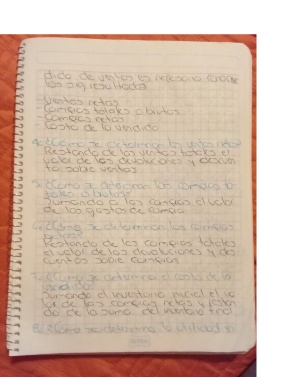 dida de ventas es necesario conocer
los sig resultados
-Ventas netas
-Compras totales o brutas
-Compras netas
-Costo de lo vendido
4.-¿Cómo se determinan las ventas netas?
Restando de las ventas totales el
valor de las devoluciones y descuen
tos sobre ventas
5.-¿Cómo se determinan las compras to
tales o brutas?
Sumando a las compras el valor
de los gastos de compra
6.-¿Cómo se determinan las compras
netas?
Restando de las compras totales
el valor de las devoluciones y des
cuentos sobre compras
7.-¿Cómo se determina el costo de lo
vendido?
Sumando el inventario inicial el va
lor de las compras netas y restan
do de la suma del inventario final
8.-¿Cómo se determina la utilidad